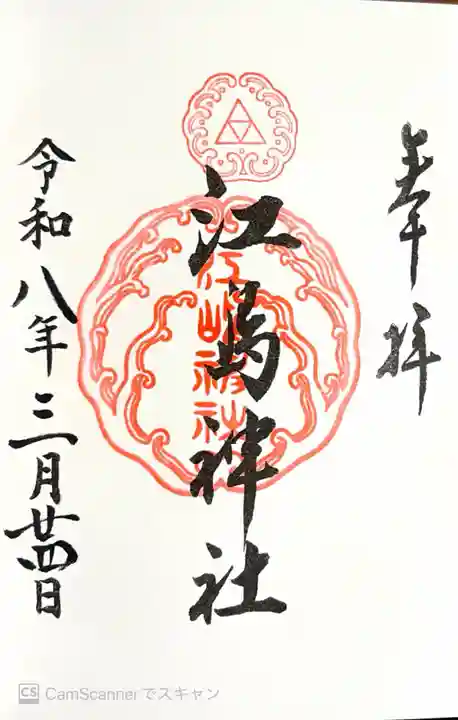 奉拝
江島神社
江島神社
令和八年三月廿四日
CS CamScannerでスキャン